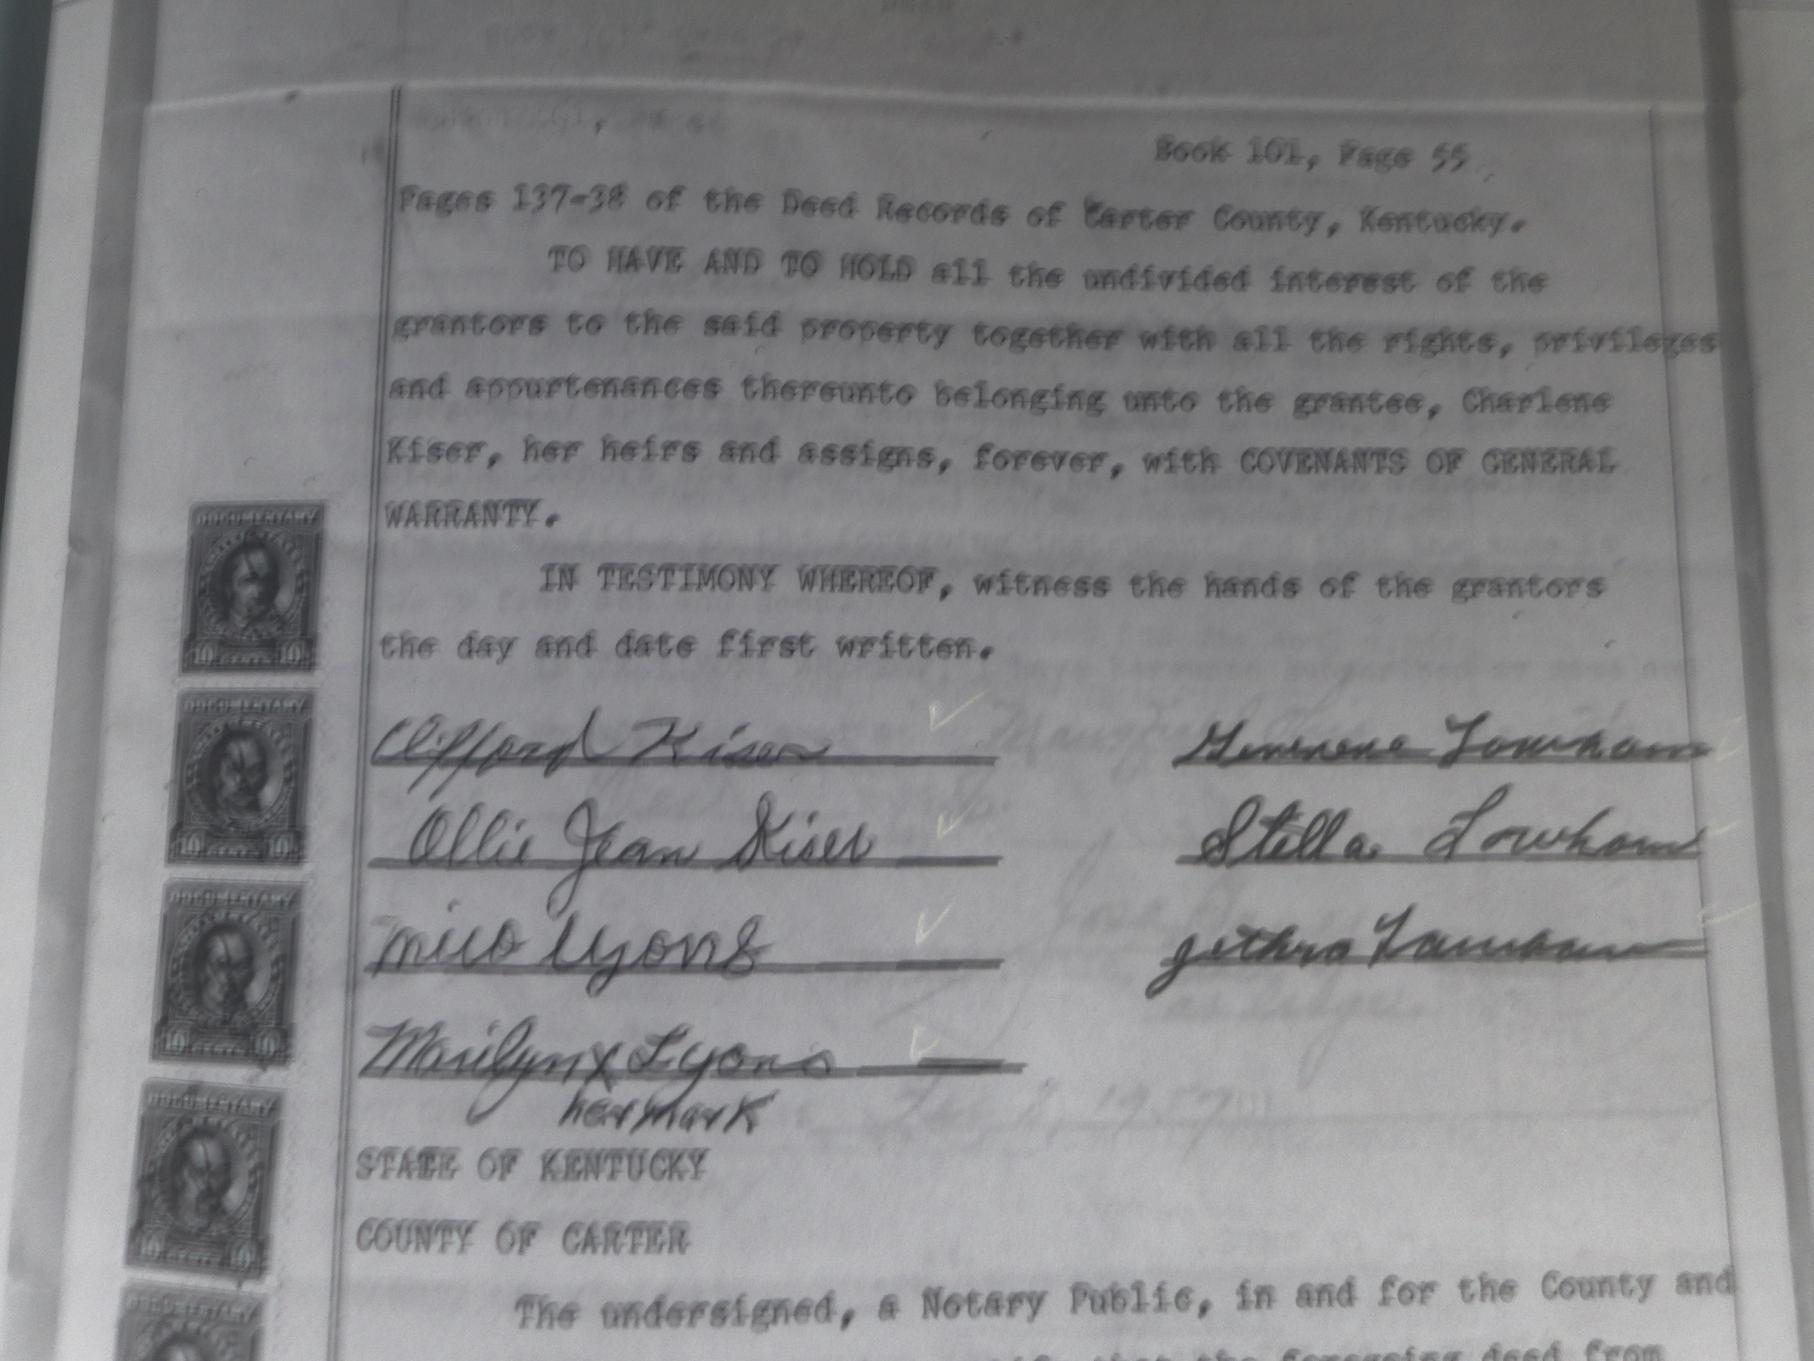 Book 101, Page 55
Pages 137-38 of the Deed Records of Carter County, Kentucky.
TO HAVE AND TO HOLD all the undivided interest of the
grantors to the said property together with all the rights, privileges
and appurtenances thereunto belonging unto the grantee, Charlene
Kiser, her heirs and assigns, forever, with COVENANTS OF GENERAL
WARRANTY.
IN TESTIMONY WHEREOF, witness the hands of the grantors
the day and date first written.
Clifford Kiser
Ollie Jean Kiser
Lyons
Marilyn x Lyons
her mark
Stella Lowham
Jethro
STATE OF KENTUCKY
COUNTY OF CARTER
The undersigned, a Notary Public, in and for the County and
that the foregoing deed from
DOCUMENTARY
10 CENTS 10
DOCUMENTARY
10 10
DOCUMENTARY
10
DOCUMENTARY
10
DOCUMENTARY